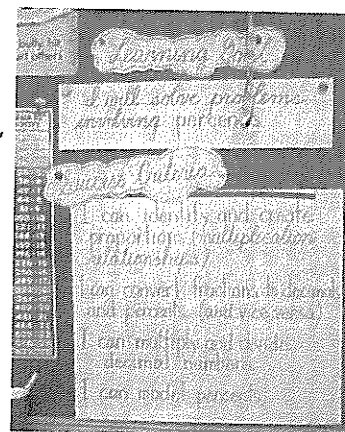 Learning Goal
I will solve problems
involving percents
Success Criteria
I can identify and create
proportions (multiplicative
relationships)
I can convert fractions, decimals
and percents (and vice versa)
I can multiply and
decimal numbers
I can model percents